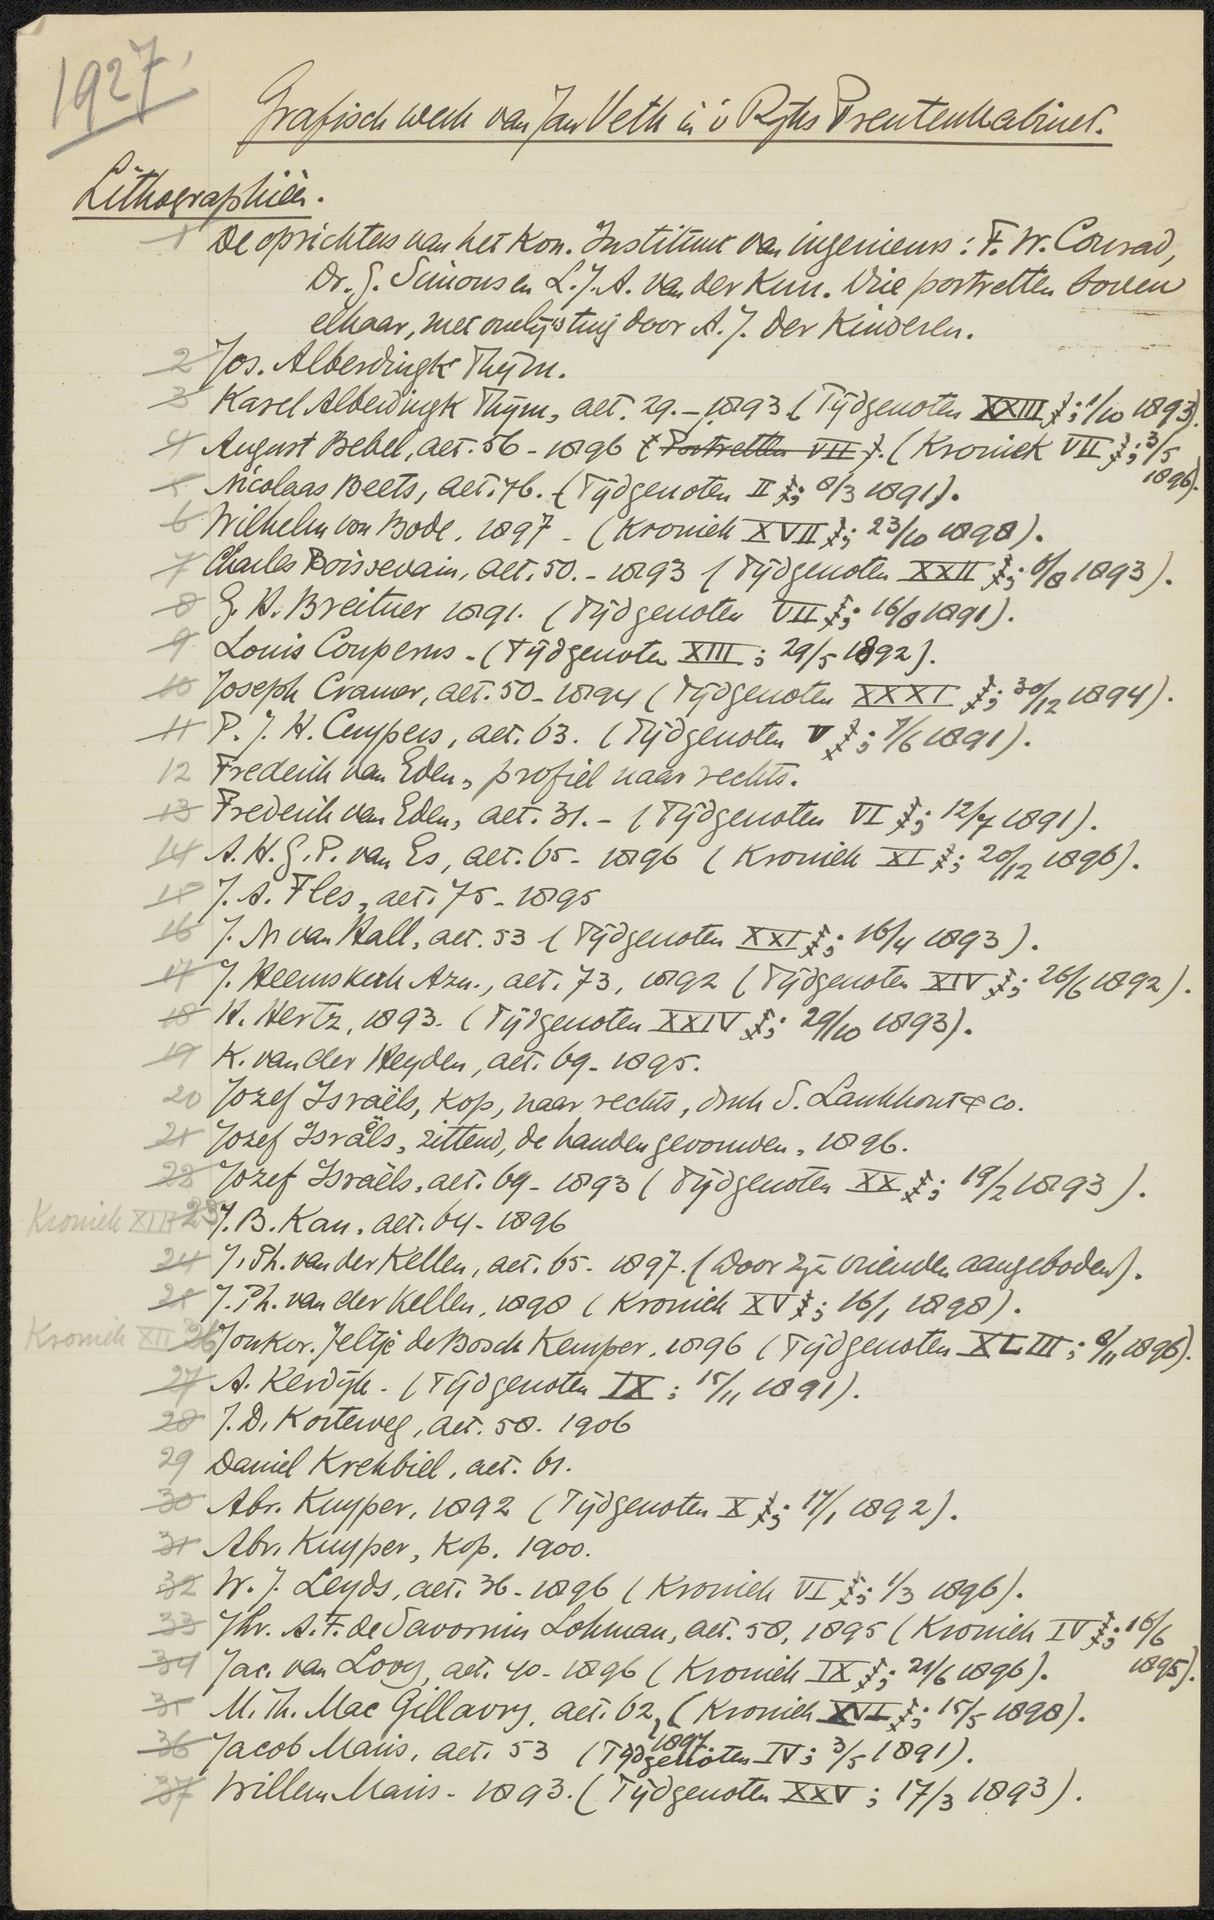 1927
Grafisch werk van Jan Veth in 's Rijks Prentenkabinet.
Lithographiën.
1 De oprichters van het Kon. Instituut van ingenieurs: F. W. Conrad,
Dr. G. Simons en L. J. A. van der Kun. Drie portretten boven
elkaar, met omlijsting door A. J. Der Kinderen.
2 Jos. Alberdingk Thijm.
3 Karel Alberdingk Thijm, aet. 29. - 1893 (Tijdgenoten XXIII; 1/10 1893).
4 August Bebel, aet. 56 - 1896 (Portretten VII). (Kroniek VII; 3/5
1896).
5 Nicolaas Beets, aet. 76. (Tijdgenoten II; 8/3 1891).
6 Wilhelm von Bode, 1897 - (Kroniek XVII; 23/10 1898).
7 Charles Boissevain, aet. 50. - 1893 (Tijdgenoten XXII; 6/8 1893).
8 G. H. Breitner 1891. (Tijdgenoten VII; 16/8 1891).
9 Louis Couperus - (Tijdgenoten XIII; 29/5 1892).
10 Joseph Cramer, aet. 50 - 1894 (Tijdgenoten XXXI; 30/12 1894).
11 P. J. H. Cuypers, aet. 63. (Tijdgenoten V; 7/6 1891).
12 Frederik van Eden, profiel naar rechts.
13 Frederik van Eden, aet. 31. - (Tijdgenoten VI; 12/7 1891).
14 A. H. G. P. van Es, aet. 65 - 1896 (Kroniek XI; 20/12 1896).
15 J. A. Fles, aet. 75 - 1895
16 J. N. van Hall, aet. 53 (Tijdgenoten XXI; 16/4 1893).
17 J. Heemskerk Azn., aet. 73, 1892 (Tijdgenoten XIV; 26/6 1892).
18 H. Hertz, 1893. (Tijdgenoten XXIV; 29/10 1893).
19 K. van der Heyden, aet. 69 - 1895.
20 Jozef Israëls, kop, naar rechts, druk S. Lankhout & Co.
21 Jozef Israëls, zittend, de handen gevouwen, 1896.
22 Jozef Israëls, aet. 69 - 1893 (Tijdgenoten XX; 19/2 1893).
Kroniek XIII 23 J. B. Kan, aet. 64 - 1896
24 J. Ph. van der Kellen, aet. 65 - 1897. (door zijn vrienden aangeboden).
25 J. Ph. van der Kellen, 1898 (Kroniek XV; 16/1 1898).
Kroniek XII 26 Jonkvr. Jeltje de Bosch Kemper, 1896 (Tijdgenoten XLIII; 8/11 1896).
27 A. Kerdijk - (Tijdgenoten IX; 15/11 1891).
28 J. D. Korteweg, aet. 58. 1906
29 Daniel Krehbiel, aet. 61.
30 Abr. Kuyper, 1892 (Tijdgenoten X; 17/1 1892).
31 Abr. Kuyper, kop. 1900.
32 W. J. Leyds, aet. 36 - 1896 (Kroniek VI; 1/3 1896).
33 Jhr. A. F. de Savornin Lohman, aet. 58, 1895 (Kroniek IV; 16/6
1895).
34 Jac. van Looy, aet. 40 - 1896 (Kroniek IX; 21/6 1896).
35 M. Th. Mac Gillavry, aet. 62, 1897 (Kroniek XVI; 15/5 1898).
36 Jacob Maris, aet. 53 (Tijdgenoten IV; 3/5 1891).
37 Willem Maris - 1893. (Tijdgenoten XXV; 17/3 1893).